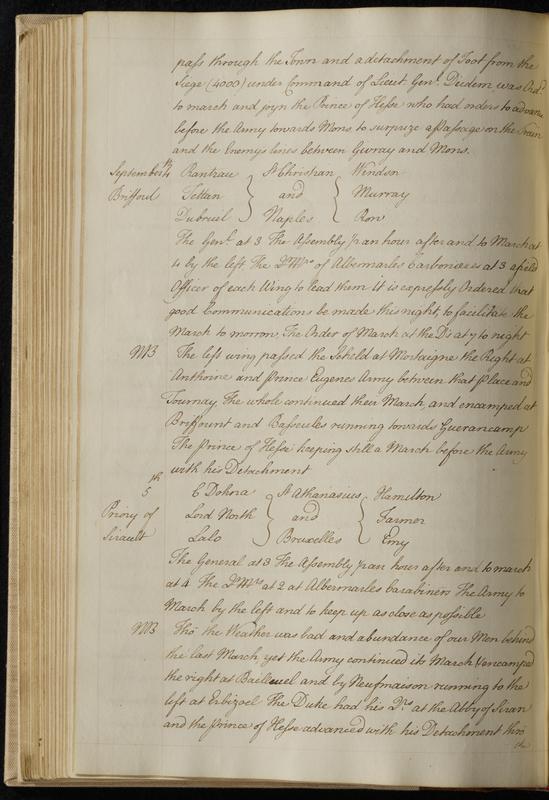 pass through the Town and a detachment of Foot from the
Siege (4000) under Command of Lieut Gen.l Dedem was Ord.d
to march and joyn the Prince of Hesse who had orders to advance
before the Army towards Mons to surprize a Passage on the
and the Enemys lines between Givray and Mons.
September 4th Rantzau St Christian Windsor
Briffoul Settan and Murray
Dubreuil Naples Row
The Gen.l at 3 The Assembly ½ an hour after and to March at
4 by the left The Q.r M.rs of Albermarles Carbonieres at 3 a field
Officer of each Wing to lead them it is expressly Ordered that
good Communications be made this night, to facilitate the
March to morrow, The Order of March at the D's at 7 to night
NB The left wing passed the Scheld at Mortaigne the Right at
Anthoine and Prince Eugenes Army between that Place and
Tournay The whole continued their March, and encamped at
Briffount and Bassecles running towards Guerancamp
The Prince of Hesse keeping still a March before the Army
with his Detachment
5th C Dohna St Athanasius Hamilton
Priory of Lord North and Farmer
Sirault Lalo Bruxelles Emy
The General at 3 The Assembly ½ an hour after and to march
at 4 The Q.r M.rs at 2 at Albermarles barabiners The Army to
March by the left and to keep up as close as possible
NB Tho the Weather was bad and abundance of our Men behind
the last March yet the Army continued its March & encamped
the right at Bailleuel and by Neufmaison running to the
left at Erbizoel The Duke had his Q.rs at the Abby of Siran
and the Prince of Hesse advanced with his Detachment thro
the